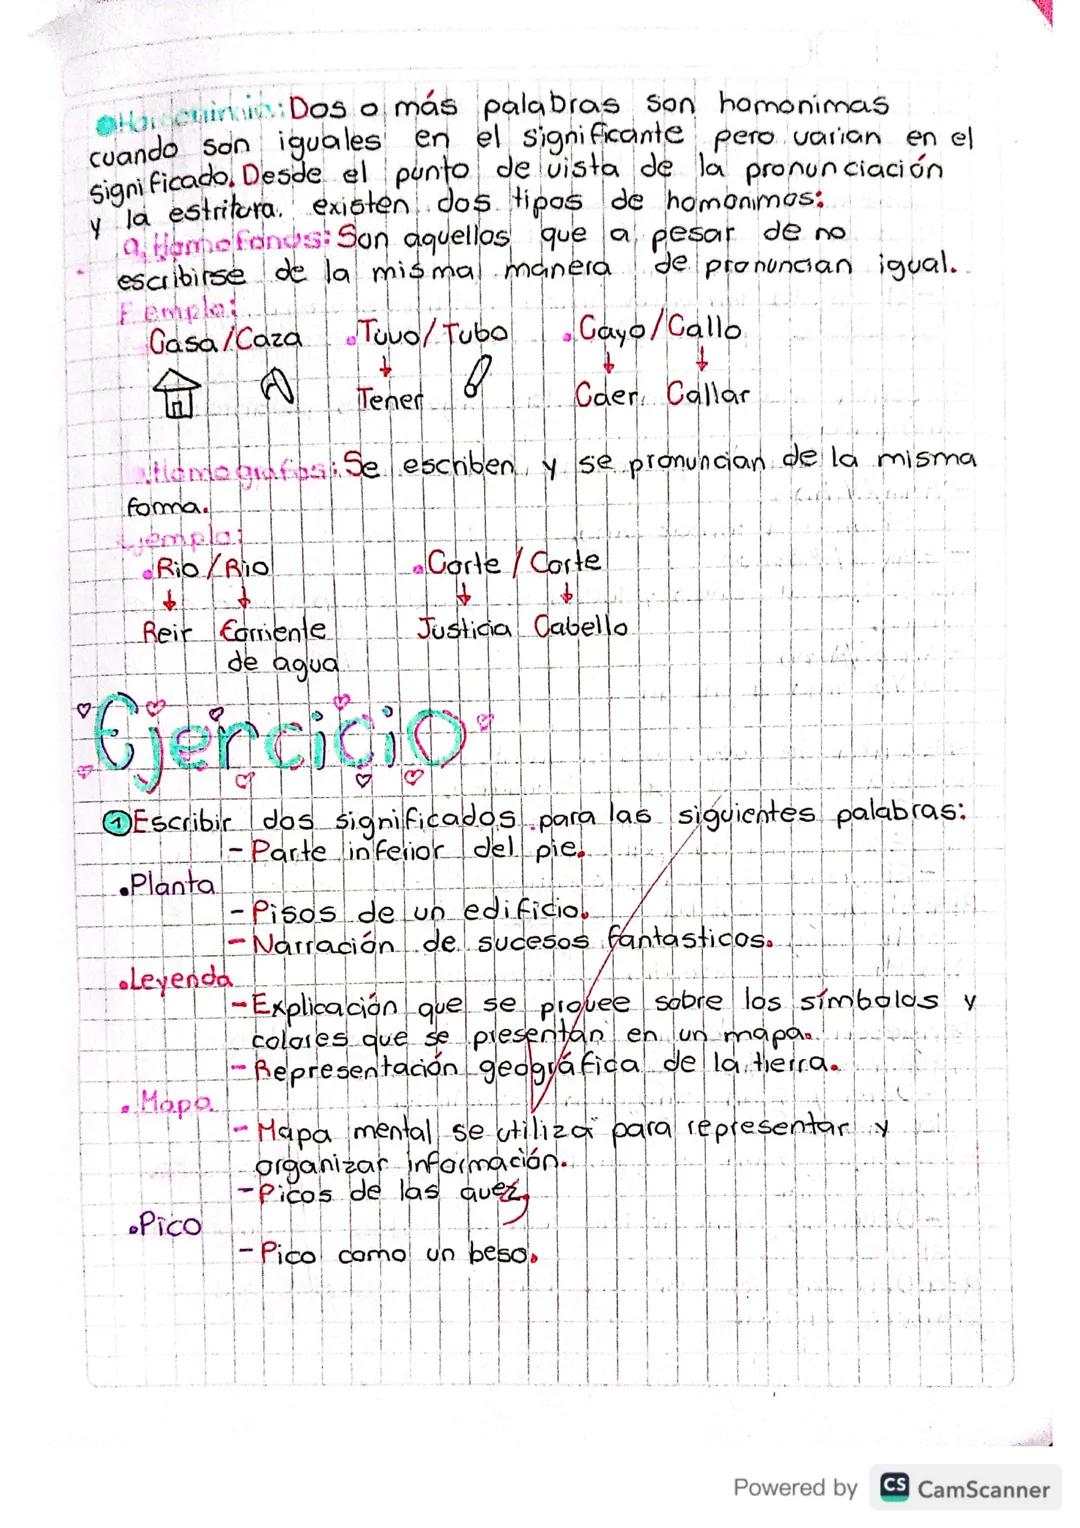 Homonimia: Dos o más palabras son homonimas
cuando son iguales en el significante pero varian en el
significado. Desde el punto de vista de la pronunciación
y la estritura. existen dos tipos de homonimos:
a, Homofonos: Son aquellos que a pesar de no
escribirse de la misma manera de pronuncian igual.
Ejemplo:
Casa/Caza .Tuvo/Tubo .Cayo/Callo
Tener Caer. Callar
.Homografos: Se escriben y se pronuncian de la misma
forma.
Ejemplo:
.Rio/Rio .Corte/Corte
Reir Corriente Justicia Cabello
de agua
Ejercicio
1 Escribir dos significados para las siguientes palabras:
- Parte inferior del pie.
.Planta
- Pisos de un edificio.
- Narración de sucesos fantasticos.
.Leyenda
- Explicación que se provee sobre los símbolos y
colores que se presentan en un mapa.
- Representación geográfica de la tierra.
.Mapa
- Mapa mental se utiliza para representar y
organizar información.
- Picos de las avez,
.Pico
- Pico como un beso.
Powered by CS CamScanner